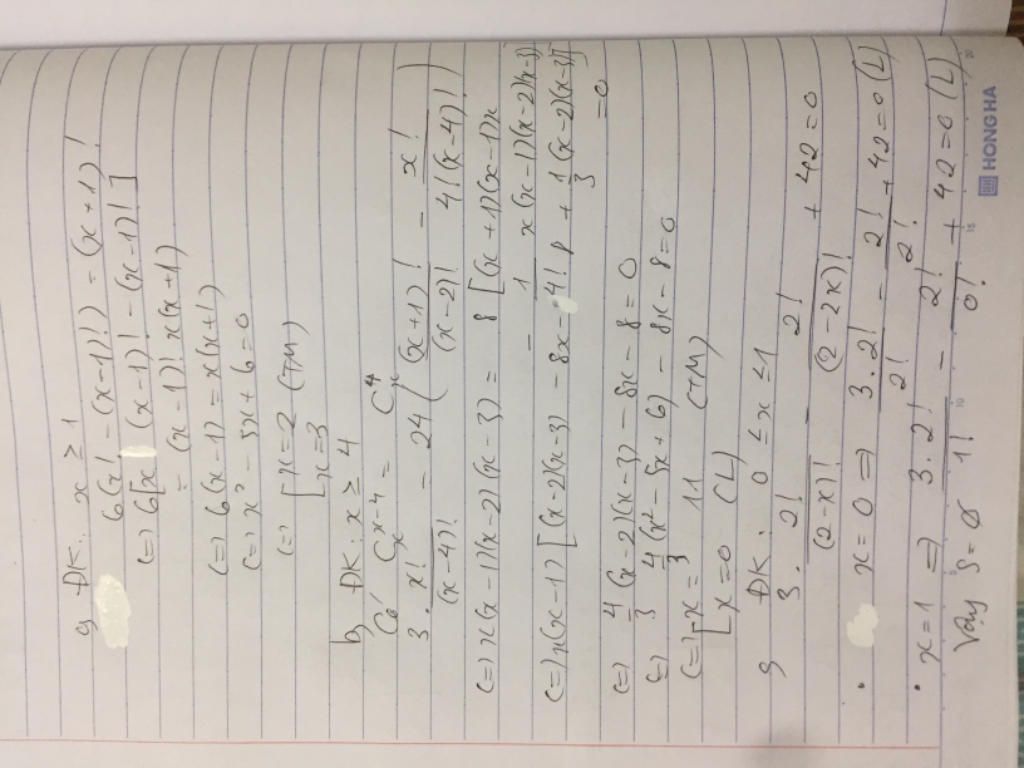 a, ĐK: x ≥ 1
6(x! - (x-1)!) = (x+1)!
(=) 6[x (x-1)! - (x-1)!]
= (x-1)! x(x+1)
(=) 6(x-1) = x(x+1)
(=) x² - 5x + 6 = 0
(=) [x=2 (TM)
[x=3
b, ĐK: x ≥ 4
Có C_x^{x-4} = C_x^4
3. x!/(x-4)! = 24((x+1)!/(x-2)! - x!/4!(x-4)!)
(=) x(x-1)(x-2)(x-3) = 8[(x+1)(x-1)x
- 1/4! x(x-1)(x-2)(x-3)]
(=) x(x-1)[(x-2)(x-3) - 8x - 8 + 1/3(x-2)(x-3)]
=0
(=) 4/3(x-2)(x-3) - 8x - 8 = 0
(=) 4/3(x² - 5x + 6) - 8x - 8 = 0
(=) [x = 11 (TM)
[x=0 (L)
ĐK: 0 ≤ x ≤ 1
3. 2!/(2-x)! - 2!/(2-2x)! + 42=0
• x=0 => 3.2!/2! - 2!/2! + 42=0 (L)
• x=1 => 3.2!/1! - 2!/0! + 42=0 (L)
Vậy S=Ø
HONGHA
10
15
20